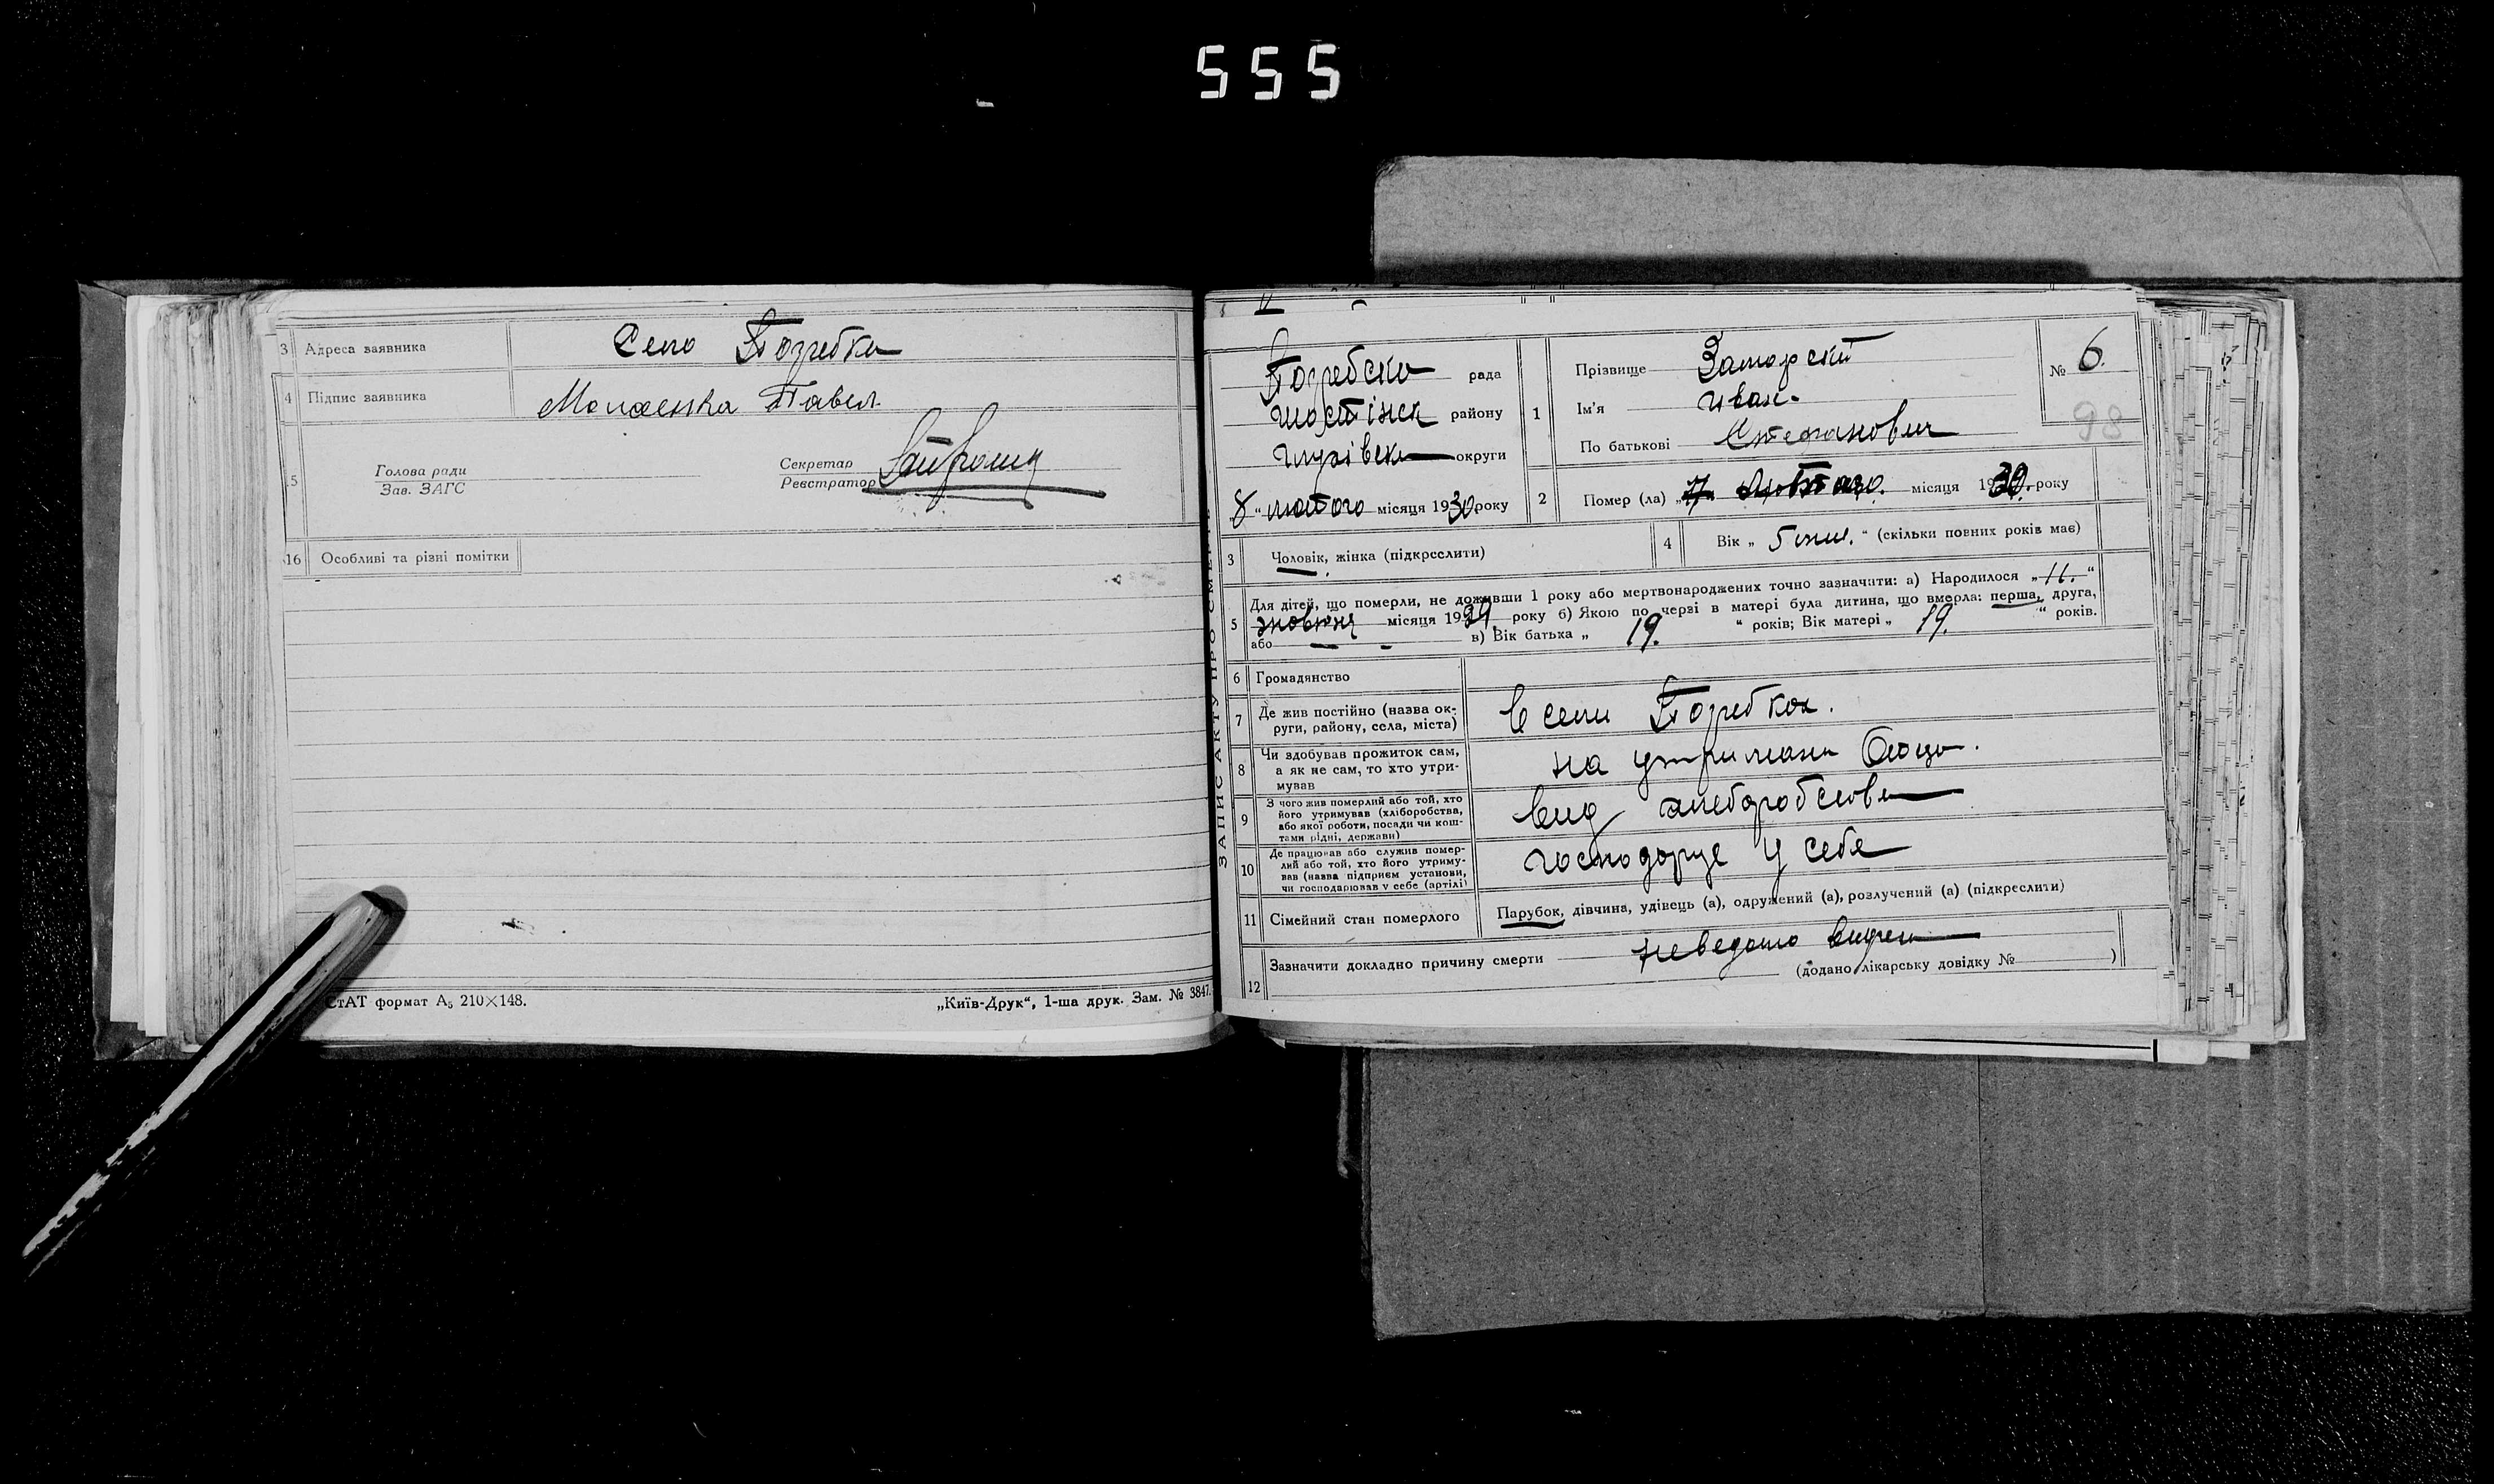 555
3 Адреса заявника Село Погребки
4 Підпис заявника Павел
5 Голова ради
Зав. ЗАГС
Секретар
Реєстратор
16 Особливі та різні помітки
СтАТ формат А₅ 210×148.
„Київ-Друк“, 1-ша друк. Зам. № 3847.
ЗАПИС АКТУ ПРО СМЕРТЬ
Погребско рада
шостінск району
глухівск округи
„8“ лютого місяця 1930 року
1 Прізвище
Ім'я Иван.
По батькові Степанович
№ 6.
98
2 Помер (ла) „7 лютого. місяця 1930. року
3 Чоловік, жінка (підкреслити)
4 Вік „ 5 “ (скільки повних років має)
5 Для дітей, що померли, не доживши 1 року або мертвонароджених точно зазначати: а) Народилося „11.“
жовтня місяця 1929 року б) Якою по черзі в матері була дитина, що вмерла: перша, друга,
або в) Вік батька „ 19. “ років; Вік матері „ 19. “ років.
6 Громадянство
7 Де жив постійно (назва ок-
руги, району, села, міста)
В сели Погребках.
8 Чи здобував прожиток сам,
а як не сам, то хто утри-
мував
на утримани
9 З чого жив померлий або той, хто
його утримував (хліборобства,
або якої роботи, посади чи кош-
тами рідні, держави)
вид хлеборобства
10 Де працював або служив помер-
лий або той, хто його утриму-
вав (назва підприєм установи,
чи господарював у себе (артілі)
господорує у себе
11 Сімейний стан померлого
Парубок, дівчина, удівець (а), одружений (а), розлучений (а) (підкреслити)
12 Зазначити докладно причину смерти неведомо
(додано лікарську довідку № )